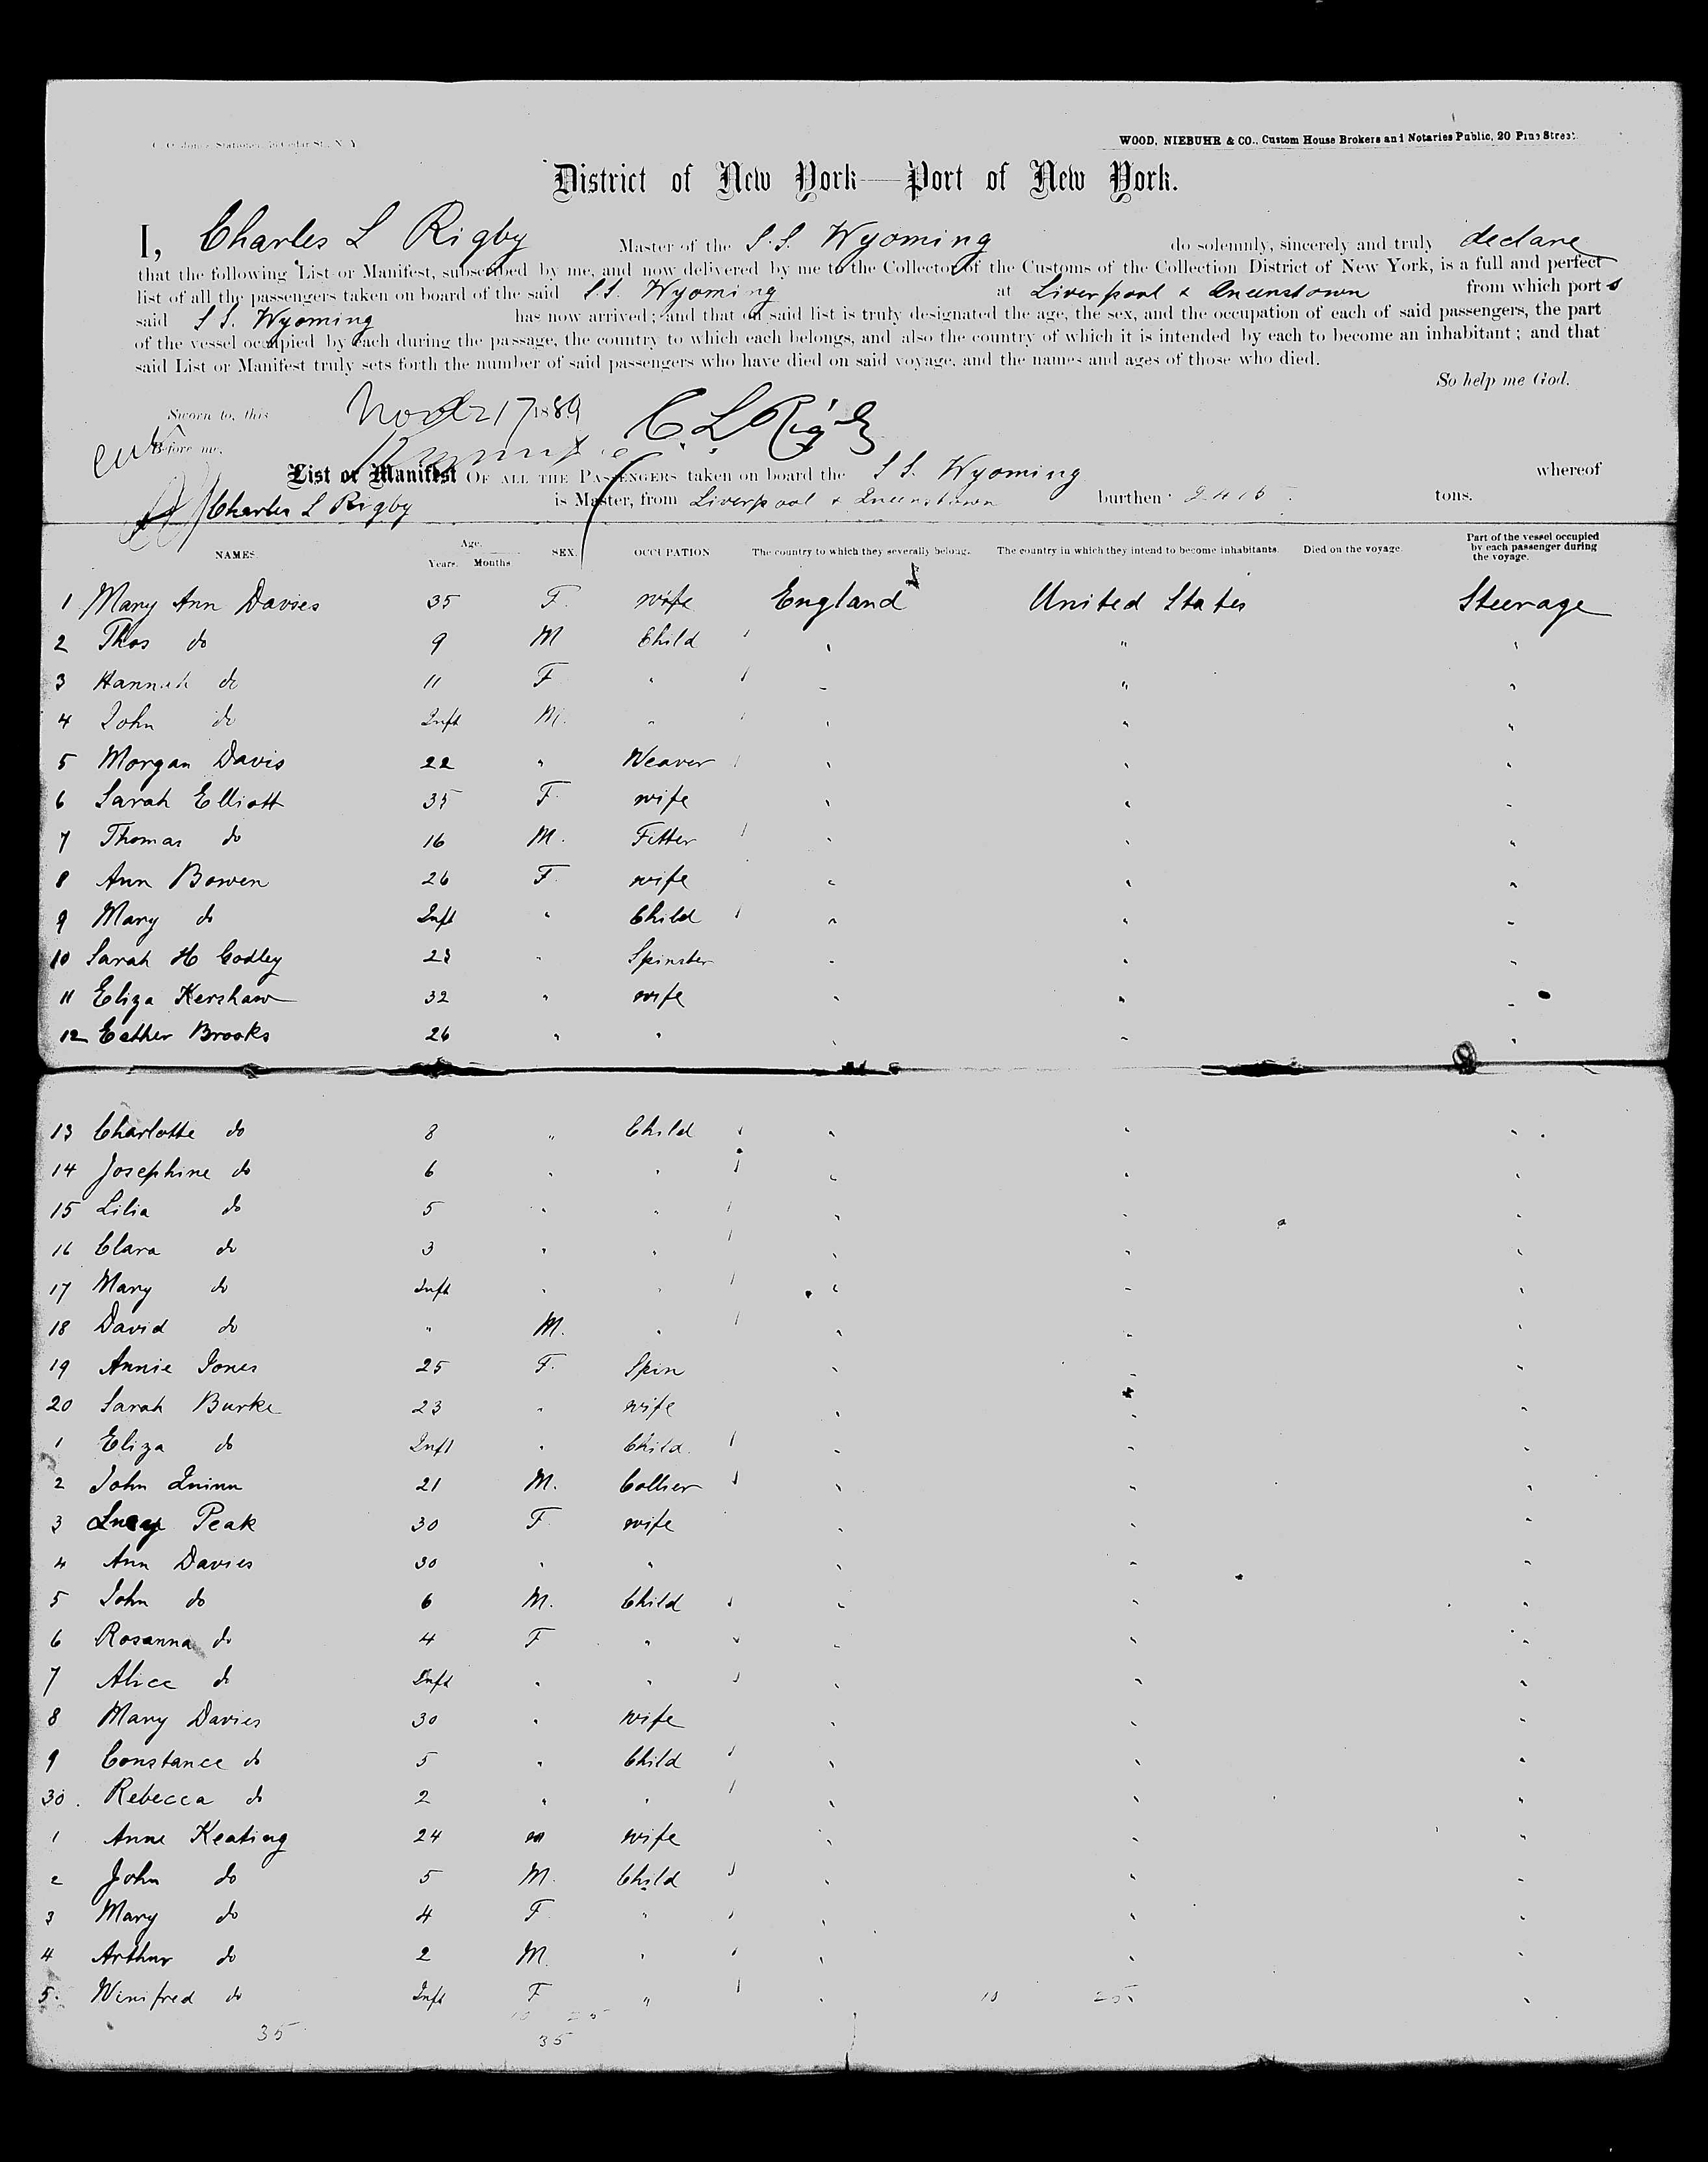 WOOD, NIEBUHR & CO., Custom House Brokers and Notaries Public, 20 Pine Street.
District of New York—Port of New York.
I, Charles L Rigby Master of the S.S. Wyoming do solemnly, sincerely and truly declare
that the following List or Manifest, subscribed by me, and now delivered by me to the Collector of the Customs of the Collection District of New York, is a full and perfect
list of all the passengers taken on board of the said S.S. Wyoming at Liverpool & Queenstown from which ports
said S.S. Wyoming has now arrived; and that on said list is truly designated the age, the sex, and the occupation of each of said passengers, the part
of the vessel occupied by each during the passage, the country to which each belongs, and also the country of which it is intended by each to become an inhabitant; and that
said List or Manifest truly sets forth the number of said passengers who have died on said voyage, and the names and ages of those who died.
So help me God.
Sworn to, this 17 1889 C. L Rigby
Before me,
List or Manifest OF ALL THE PASSENGERS taken on board the S.S. Wyoming whereof
Charles L Rigby is Master, from Liverpool & Queenstown burthen tons.
NAMES. Age. Years. Months SEX. OCCUPATION The country to which they severally belong. The country in which they intend to become inhabitants. Died on the voyage. Part of the vessel occupied by each passenger during the voyage.
1 Mary Ann Davies 35 F. wife England United States Steerage
2 Thos do 9 M Child " " "
3 Hannah do 11 F " " " "
4 John do Inft M. " " " "
5 Morgan Davis 22 " Weaver " " "
6 Sarah Elliott 35 F. wife " " "
7 Thomas do 16 M. Fitter " " "
8 Ann Bowen 26 F. wife " " "
9 Mary do Inft " Child " " "
10 Sarah H Codley 23 " Spinster " " "
11 Eliza Kershaw 32 " wife " " "
12 Esther Brooks 26 " " " " "
13 Charlotte do 8 " Child " " "
14 Josephine do 6 " " " " "
15 Lilia do 5 " " " " "
16 Clara do 3 " " " " "
17 Mary do Inft " " " " "
18 David do " M. " " " "
19 Annie Jones 25 F. Spin " " "
20 Sarah Burke 23 " wife " " "
1 Eliza do Inft " Child. " " "
2 John Quinn 21 M. Collier " " "
3 Lucy Peak 30 F wife " " "
4 Ann Davies 30 " " " " "
5 John do 6 M. Child " " "
6 Rosanna do 4 F " " " "
7 Alice do Inft " " " " "
8 Mary Davies 30 " wife " " "
9 Constance do 5 " Child " " "
30. Rebecca do 2 " " " " "
1 Anne Keating 24 " wife " " "
2 John do 5 M. Child " " "
3 Mary do 4 F " " " "
4 Arthur do 2 M. " " " "
5. Winifred do Inft F " " 10 25 "
10 25
35 35